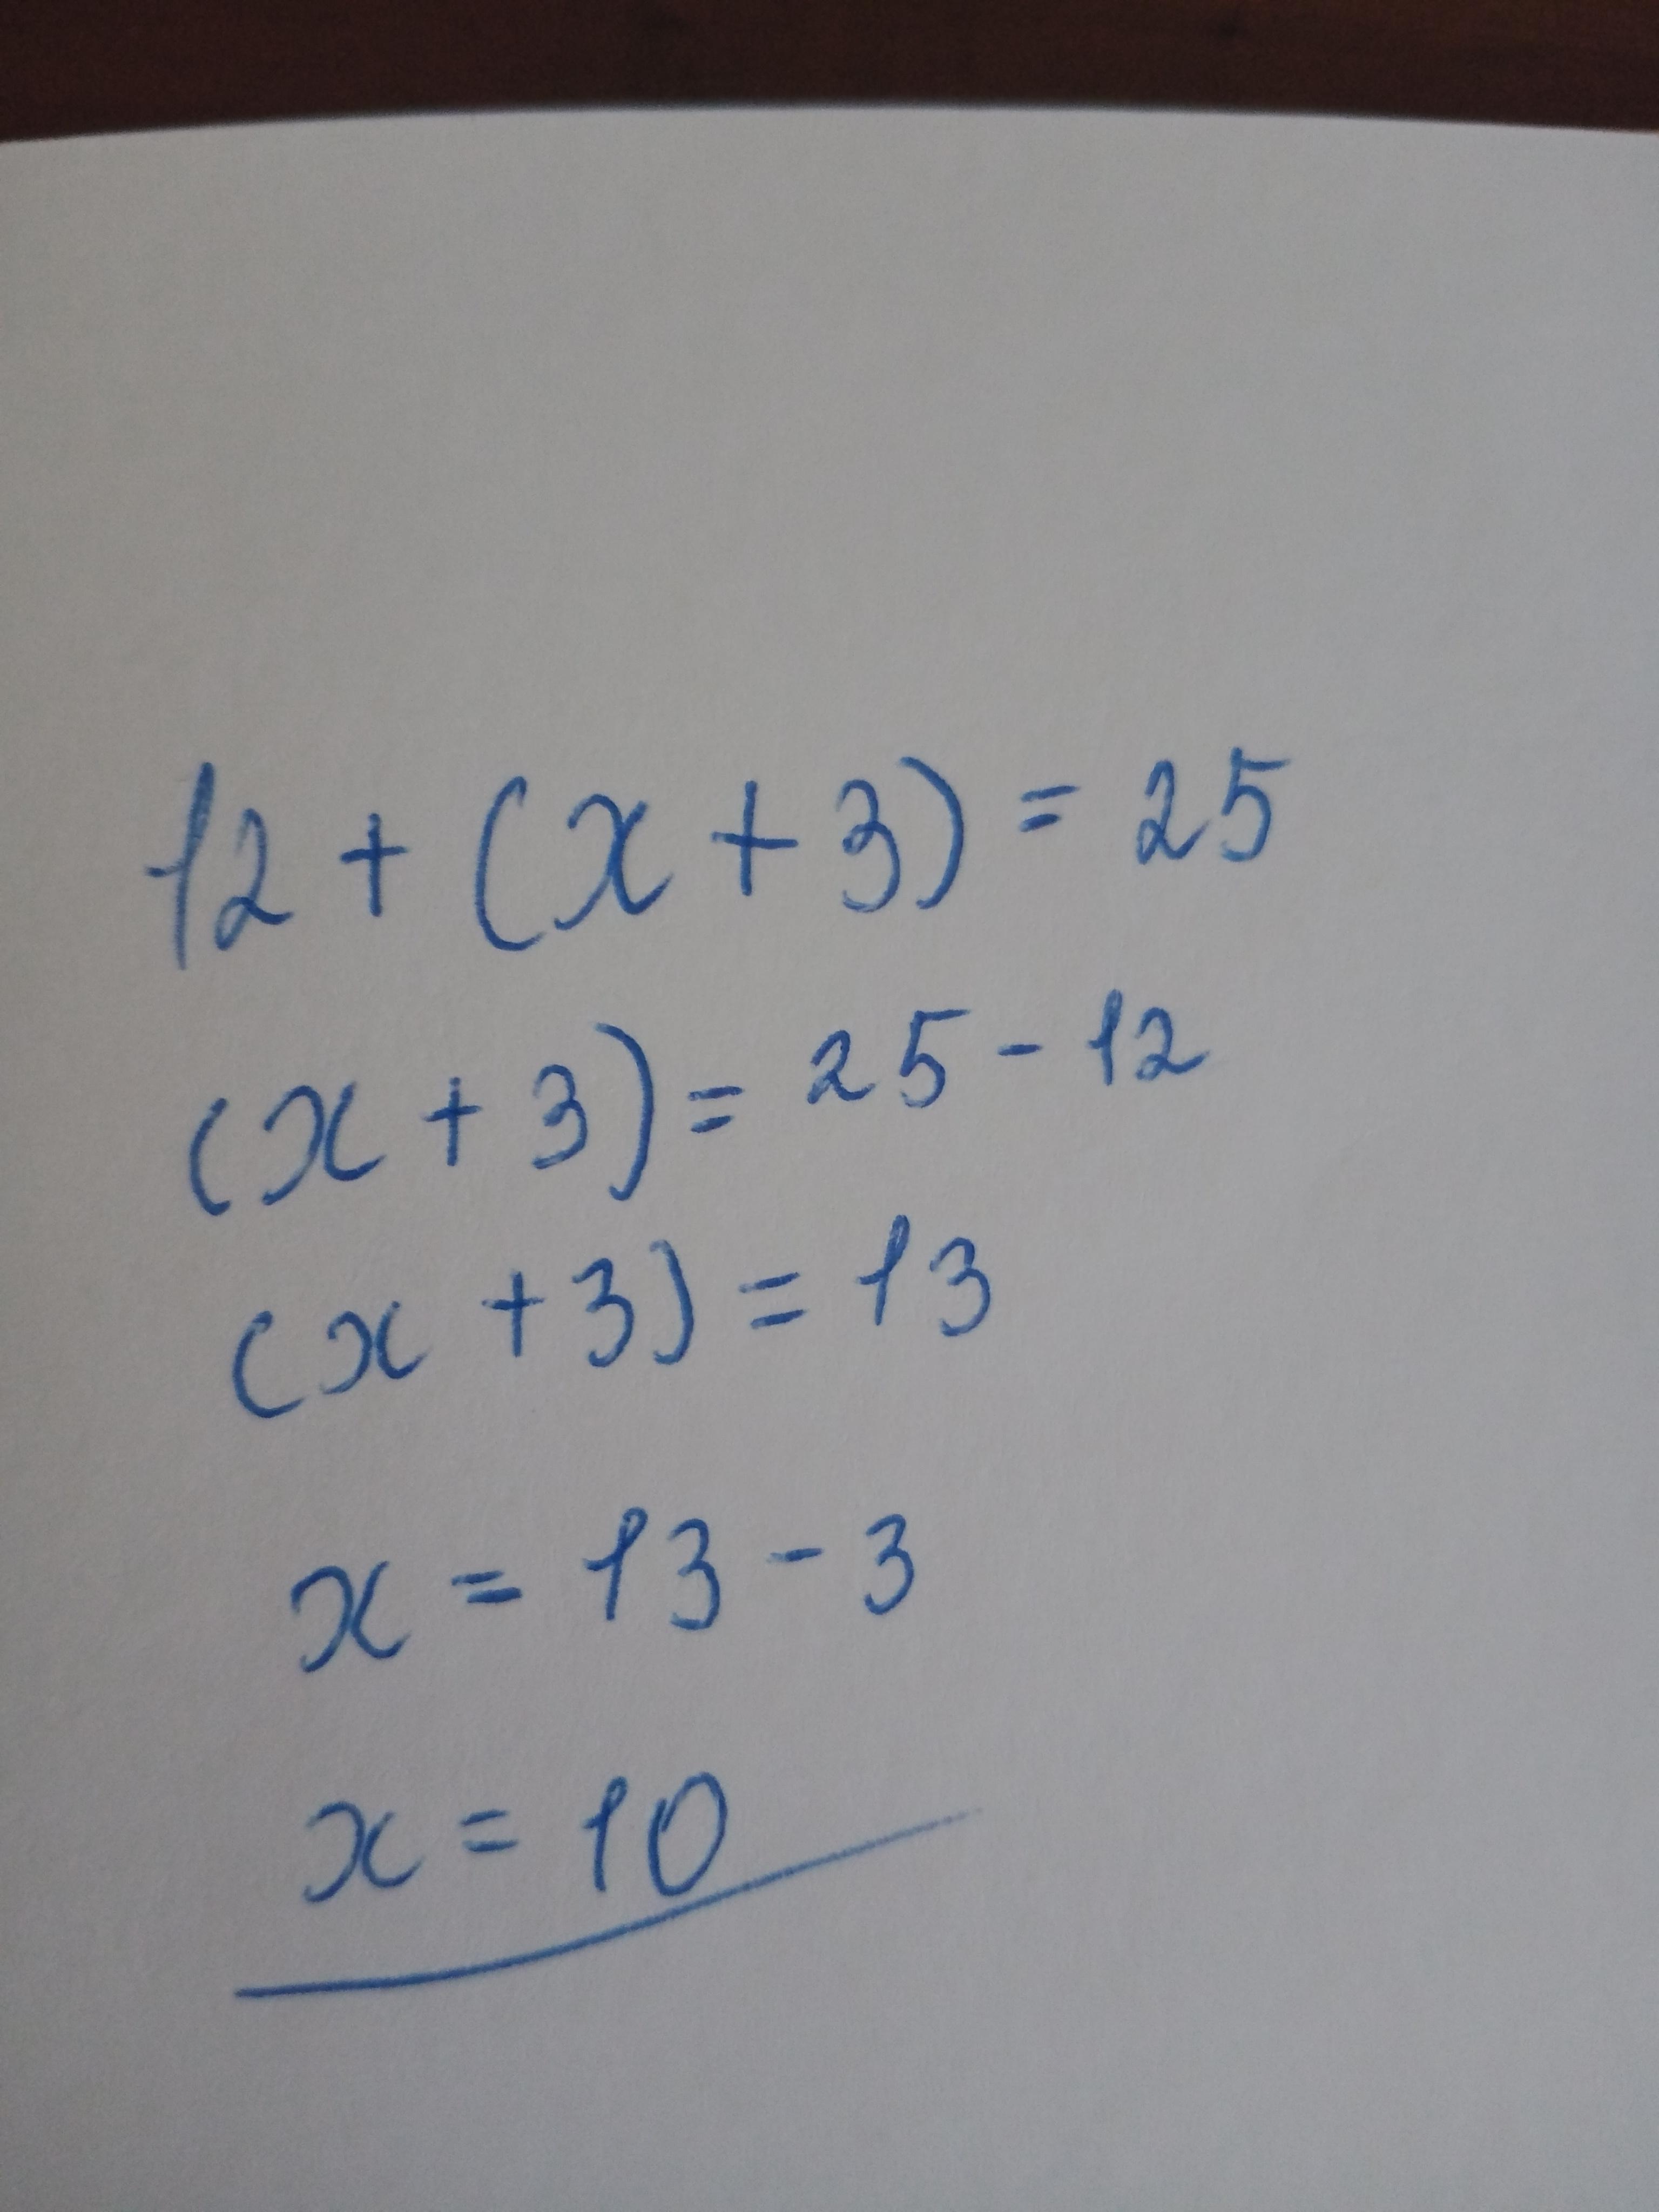 12 + (x + 3) = 25
(x + 3) = 25 - 12
(x + 3) = 13
x = 13 - 3
x = 10